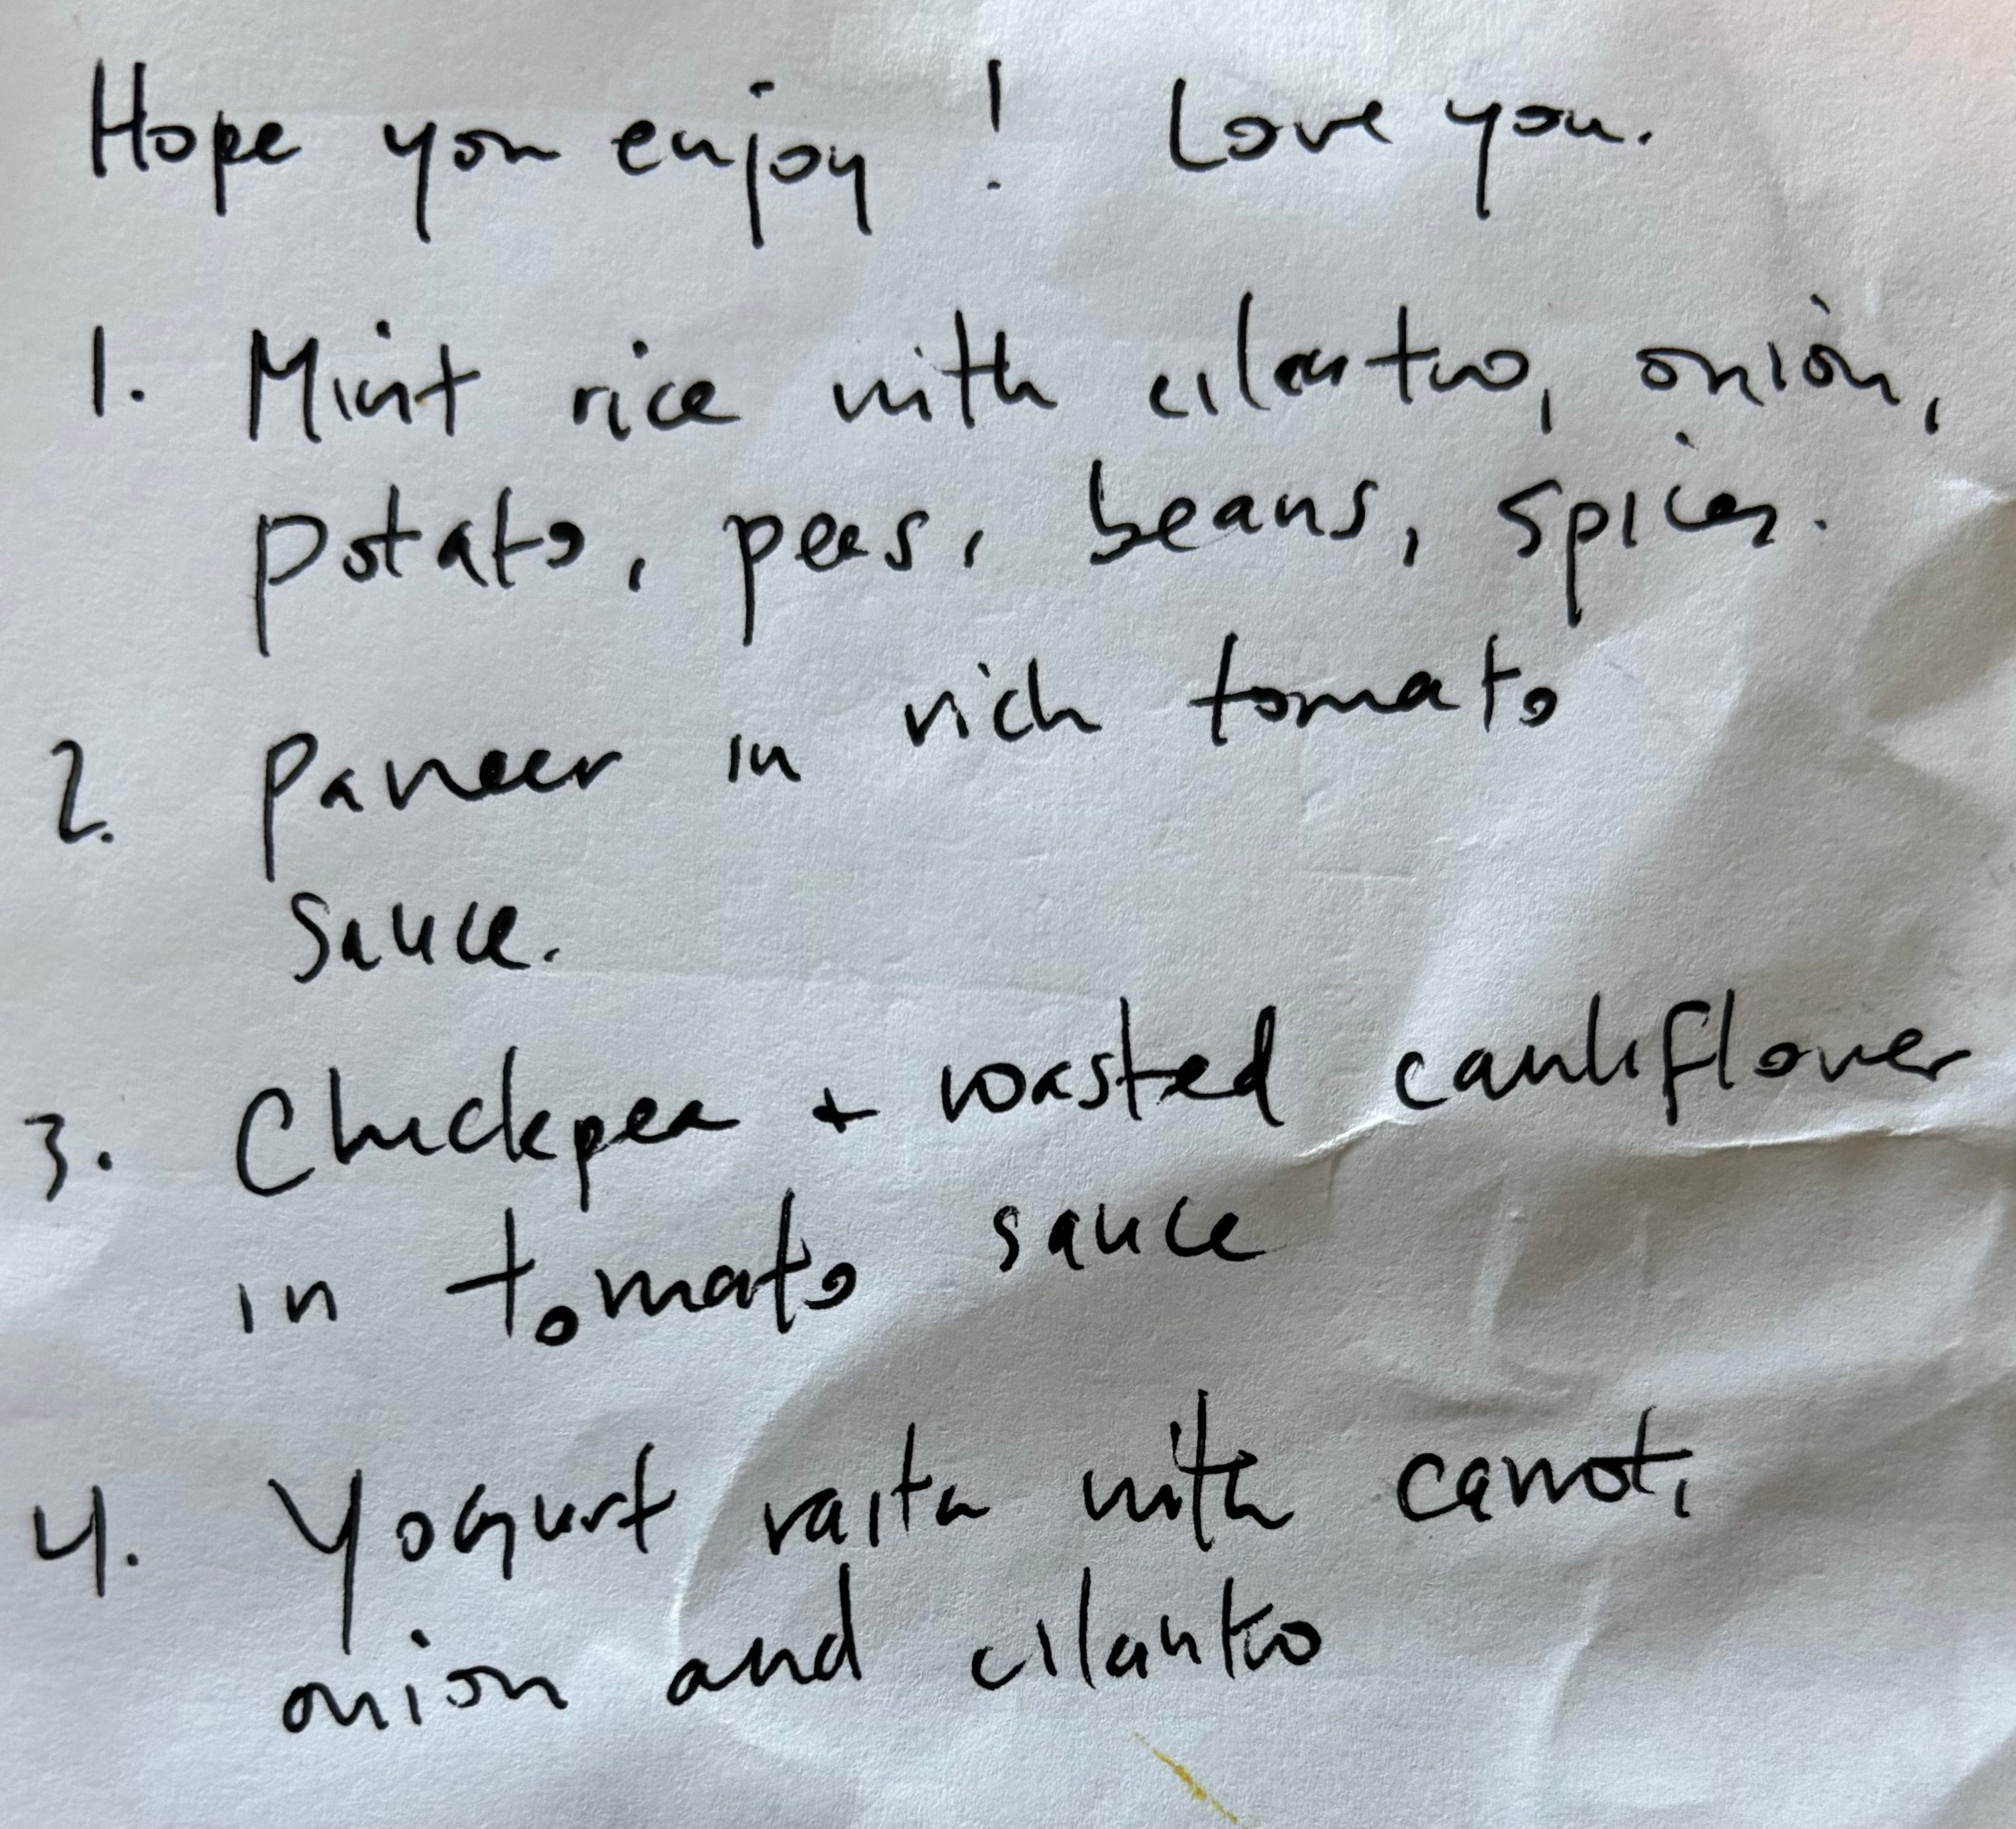 Hope you enjoy! Love you.
1. Mint rice with cilantro, onion,
potato, peas, beans, spices.
2. Paneer in rich tomato
sauce.
3. Chickpea + roasted cauliflower
in tomato sauce
4. Yogurt raita with carrot,
onion and cilantro